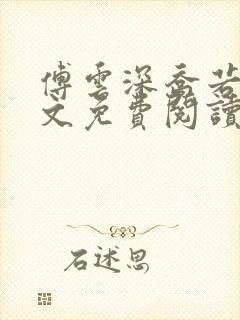 傅雲深喬若
文免費閱讀
石述思